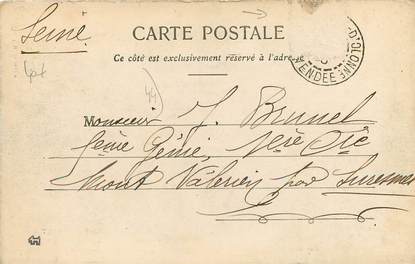 Seine
CARTE POSTALE
Ce côté est exclusivement réservé à l'adresse
D'OLONNE
VENDÉE
49
Monsieur J. Brunel
Génie, 1ère Cie
Mont Valérien par Suresnes